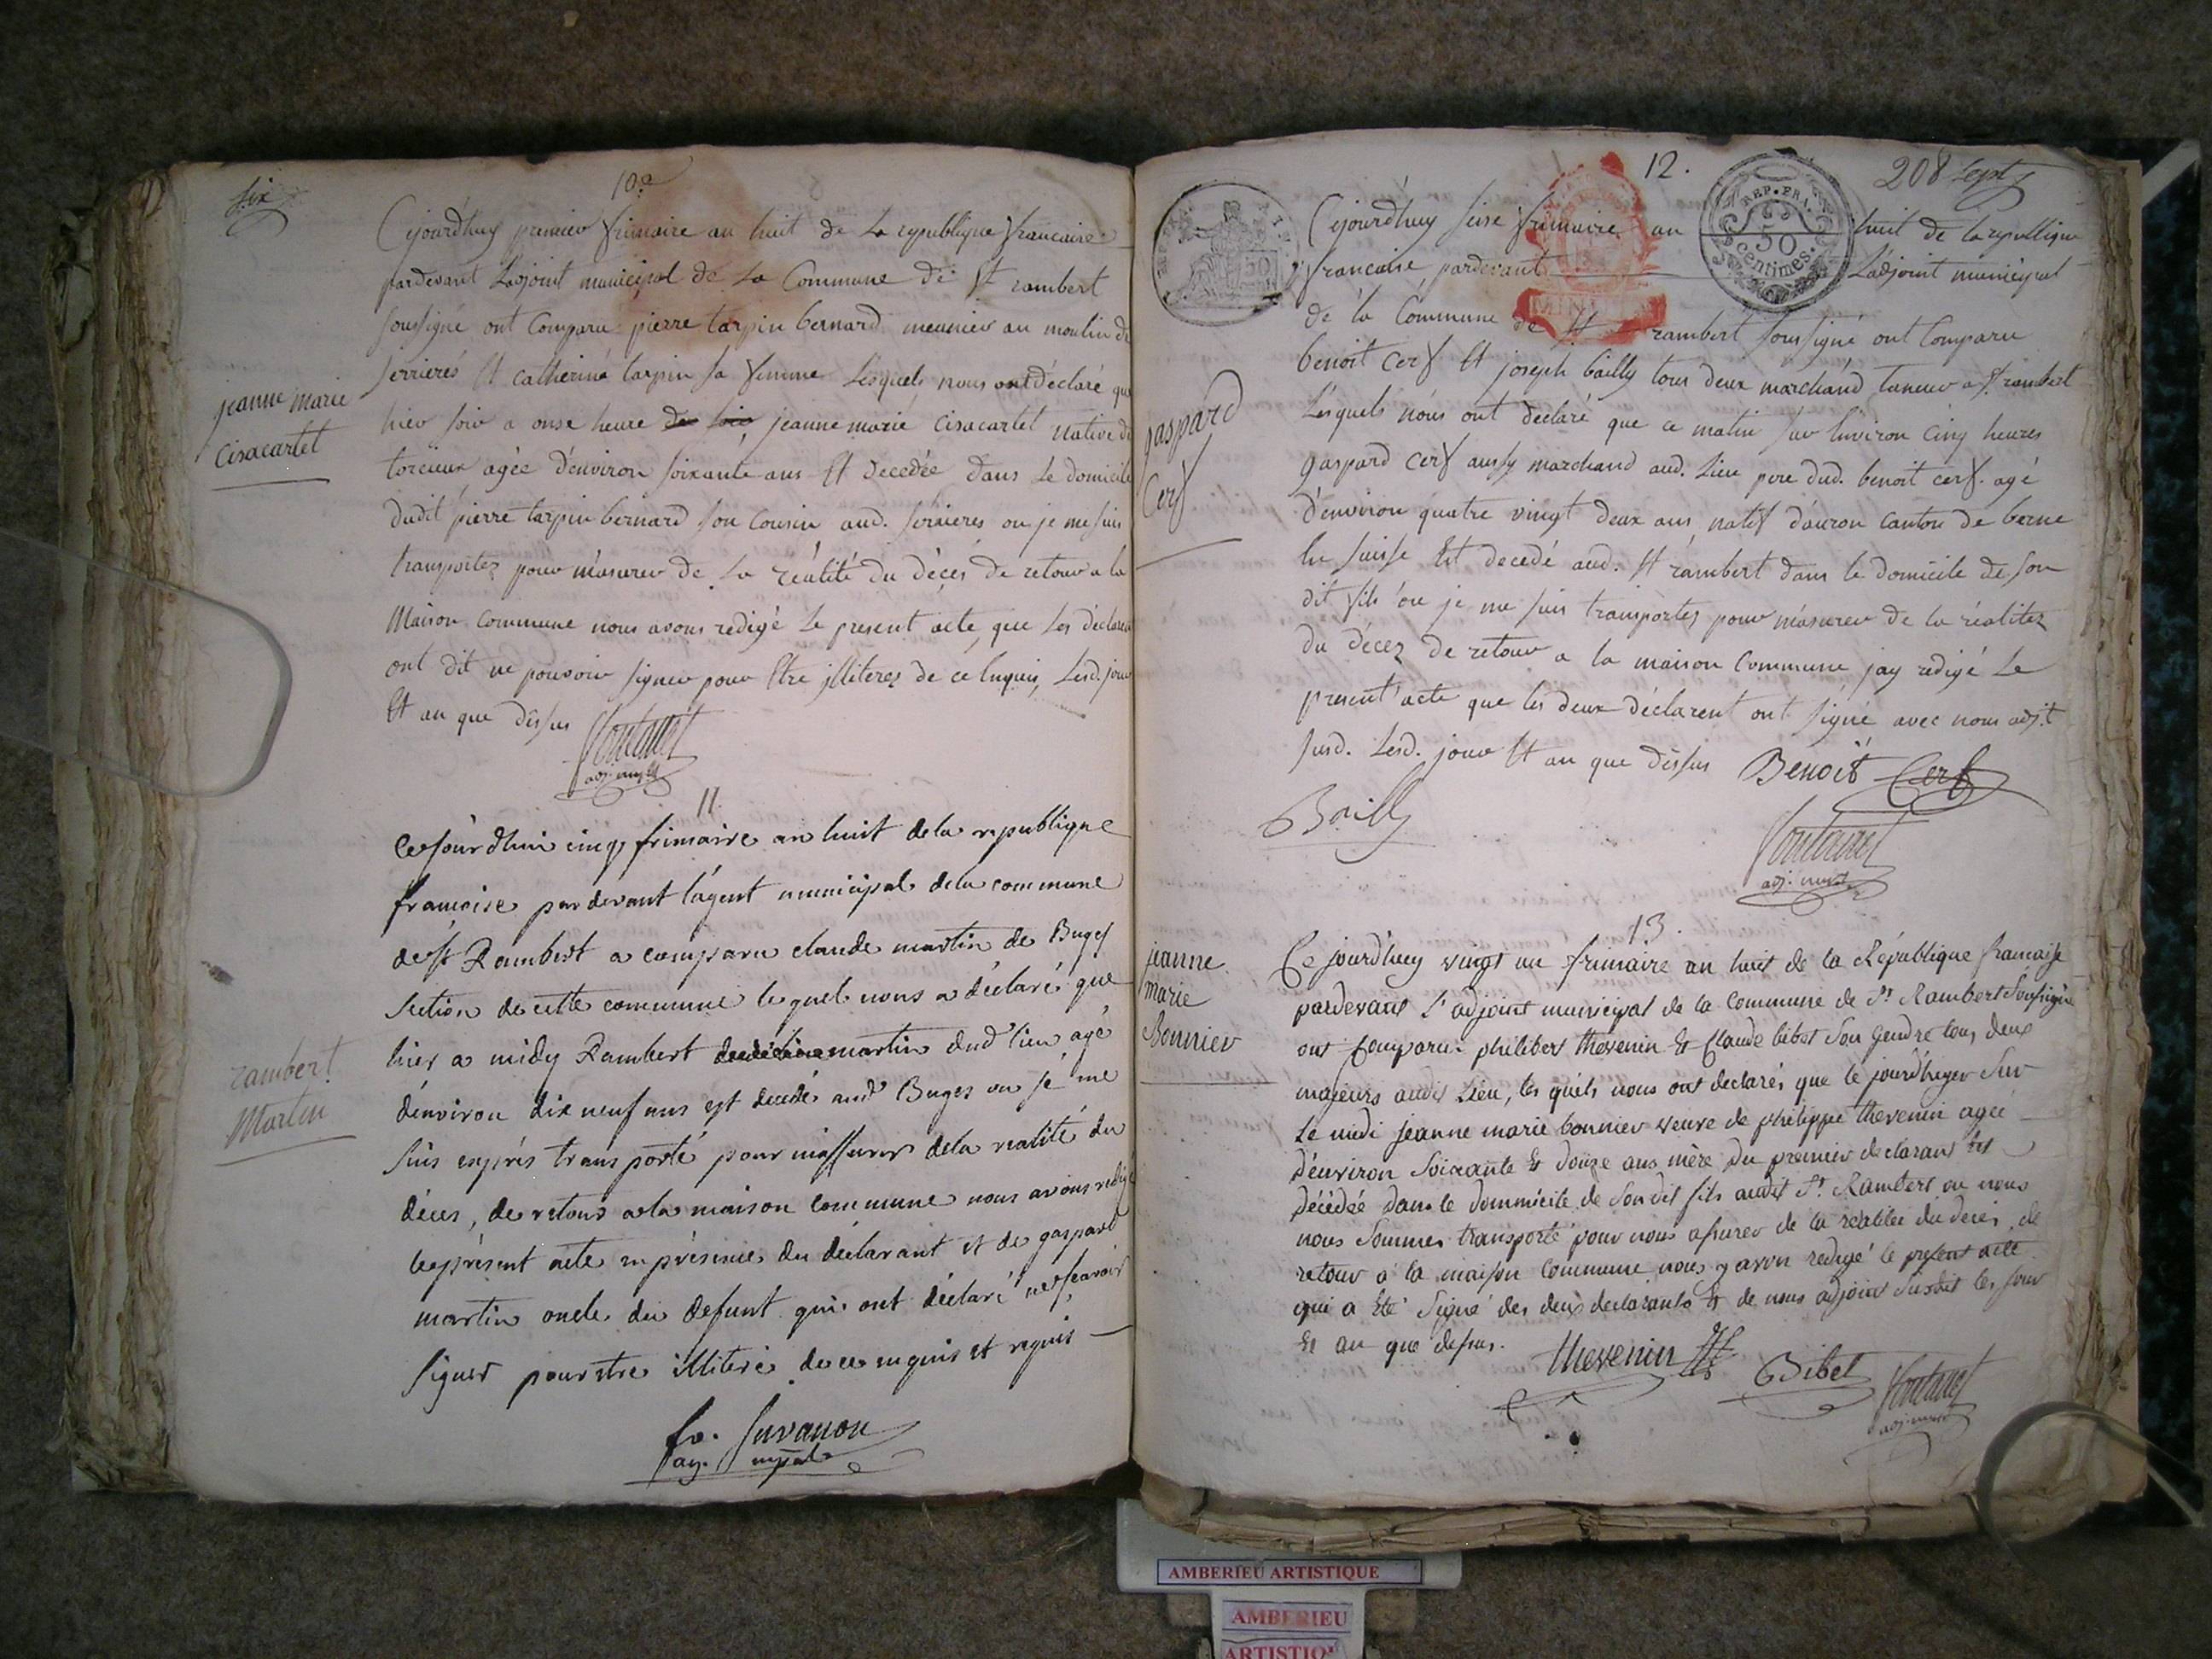 six
10e
Cejourd'huy premier frimaire an huit de La republique francaise
pardevant L'adjoint municipal de La Commune de St rambert
soussigné ont Comparu pierre tarpin bernard meunier au moulin de
serrieres Et catherine tarpin sa femme Lesquels nous ont déclaré que
jeanne marie
cisacartet
hier soir a onse heure de soir jeanne marie cisacartet native de
torcieux agée d'environ soixante ans Et decedée dans Le domicile
dudit pierre tarpin bernard son cousin aud. serrieres ou je me suis
transportez pour m'asurer de La réalité du décés de retour a la
Maison commune nous avons redigé Le present acte, que Les déclarent
ont dit ne pouvoir signer pour Etre jlliterez de ce Enquis, Lesd. jour
Et an que dessus
adj. mupal
11
Cejourd'hui cinq frimaire an huit de la republique
francoise par devant l'agent municipal de la commune
de st Rambert a comparu claude martin de Buges
section de cette commune lequel nous a déclaré que
rambert
Martin
hier a midy Rambert martin dud lieu agé
d'environ dix neuf ans est decedé aud Buges ou je me
suis exprés transporté pour m'assurer de la realité du
déces, de retour a la maison commune nous avons redigé
le présent acte en présence du déclarant et de gaspard
martin oncle du defunt qui ont déclaré ne scavoir
signer pour etre illiteré de ce enquis et requis
fx. Juvanon
ag. mpal
12.
208 sept
REP. FRA.
50
Centimes.
Cejourd'huy seise frimaire an huit de la republique
francaise pardevant L'adjoint municipal
de la Commune de St rambert soussigné ont Comparu
benoit cerf Et joseph bailly tous deux marchand taneur a St rambert
gaspard
Cerf
Lesquels nous ont déclaré que ce matin sur Environ cinq heures
gaspard cerf aussy marchand aud. Lieu pere dud. benoit cerf. agé
d'environ quatre vingt deux ans natif d'auron canton de berne
En suisse Est decedé aud. St rambert dans le domicile de son
dit fils ou je me suis transportez pour m'asurer de la réalitez
du décez de retour a la maison Commune jay redigé Le
present acte que les deux déclarent ont signé avec nous adj.t
susd. Lesd. jour Et an que dessus Benoit Cerf
Bailly
adj. mupal
13.
jeanne
marie
Bonnier
Ce jourd'huy vingt un frimaire an huit de la République francaise
pardevant l'adjoint municipal de la Commune de St Rambert soussigné
ont Comparu philibert thevenin Et Claude bibet son gendre tous deux
majeurs audit Lieu, les quels nous ont declarés que le jourd'hyer sur
Le midi jeanne marie bonnier veuve de philippe thevenin agée
d'environ soixante Et douze ans mère du premier declarant Est
décédée dans le dommicile de son dit fils audit St Rambert ou nous
nous sommes transporté pour nous assurer de la réalitée du decés, de
retour a la maison Commune nous y avon redigé le present acte
qui a Eté signé des deux declarants Et de nous adjoint susdit les jour
Et an que dessus. thevenin Bibet
adj. mupal
AMBERIEU ARTISTIQUE
AMBERIEU
ARTISTIQUE